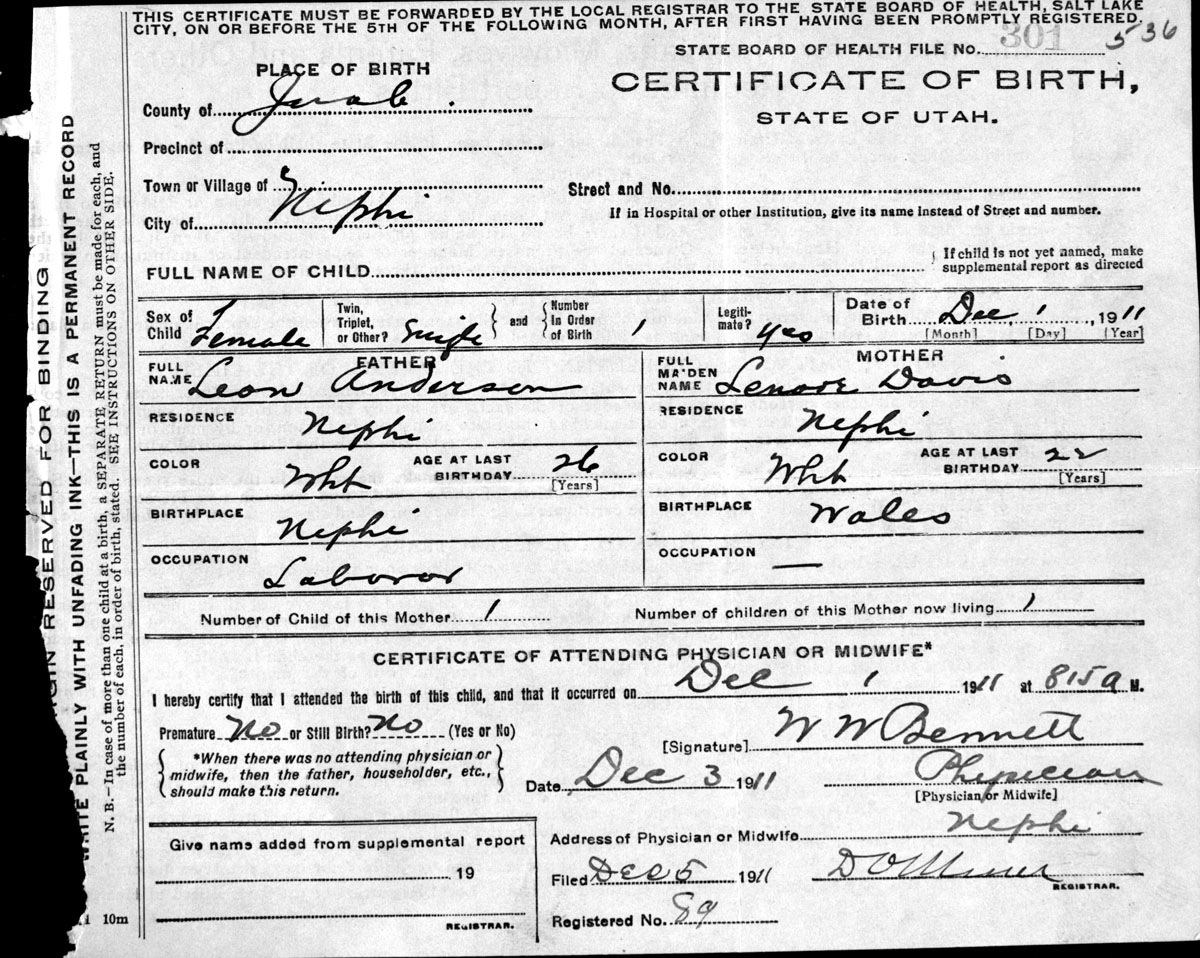 THIS CERTIFICATE MUST BE FORWARDED BY THE LOCAL REGISTRAR TO THE STATE BOARD OF HEALTH, SALT LAKE
CITY, ON OR BEFORE THE 5TH OF THE FOLLOWING MONTH, AFTER FIRST HAVING BEEN PROMPTLY REGISTERED.
STATE BOARD OF HEALTH FILE NO. 301 536
PLACE OF BIRTH
CERTIFICATE OF BIRTH,
STATE OF UTAH.
County of Juab.
Precinct of
Town or Village of
Street and No.
City of Nephi
If in Hospital or other Institution, give its name instead of Street and number.
FULL NAME OF CHILD
If child is not yet named, make
supplemental report as directed
Sex of Child Female
Twin, Triplet, or Other? Single and Number in Order of Birth 1
Legitimate? Yes
Date of Birth Dec 1, 1911
[Month] [Day] [Year]
FATHER
FULL NAME Leon Anderson
MOTHER
FULL MAIDEN NAME Lenore Davis
RESIDENCE Nephi
RESIDENCE Nephi
COLOR Wht AGE AT LAST BIRTHDAY 26 [Years]
COLOR Wht AGE AT LAST BIRTHDAY 22 [Years]
BIRTHPLACE Nephi
BIRTHPLACE Wales
OCCUPATION Laboror
OCCUPATION —
Number of Child of this Mother 1 Number of children of this Mother now living 1
CERTIFICATE OF ATTENDING PHYSICIAN OR MIDWIFE*
I hereby certify that I attended the birth of this child, and that it occurred on Dec 1 1911 at 815 a M.
Premature No or Still Birth? No (Yes or No)
[Signature] W W Bennett
*When there was no attending physician or
midwife, then the father, householder, etc.,
should make this return.
Date Dec 3 1911 Physician
[Physician or Midwife]
Give name added from supplemental report
19
REGISTRAR.
Address of Physician or Midwife Nephi
Filed Dec 5 1911
REGISTRAR.
Registered No. 89
10m
MARGIN RESERVED FOR BINDING
WRITE PLAINLY WITH UNFADING INK—THIS IS A PERMANENT RECORD
N. B.—In case of more than one child at a birth, a SEPARATE RETURN must be made for each, and
the number of each, in order of birth, stated. SEE INSTRUCTIONS ON OTHER SIDE.